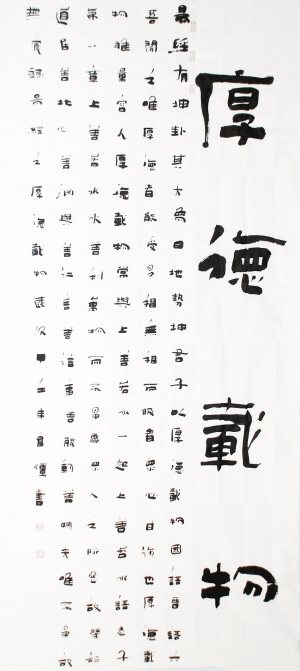 厚德載物
易經有坤卦其大象曰地勢坤君子以厚德載物國語晉語六
吾聞之唯厚德者能受多福無福而服者眾必自傷也厚德載
物雅量容人厚德載物常與上善若水一起上善若水語老子
第八章上善若水水善利萬物而不爭處眾人之所惡故幾於
道居善地心善淵與善仁言善信事善能動善時夫唯不爭故
無尤 易經之厚德載物歲次甲 書